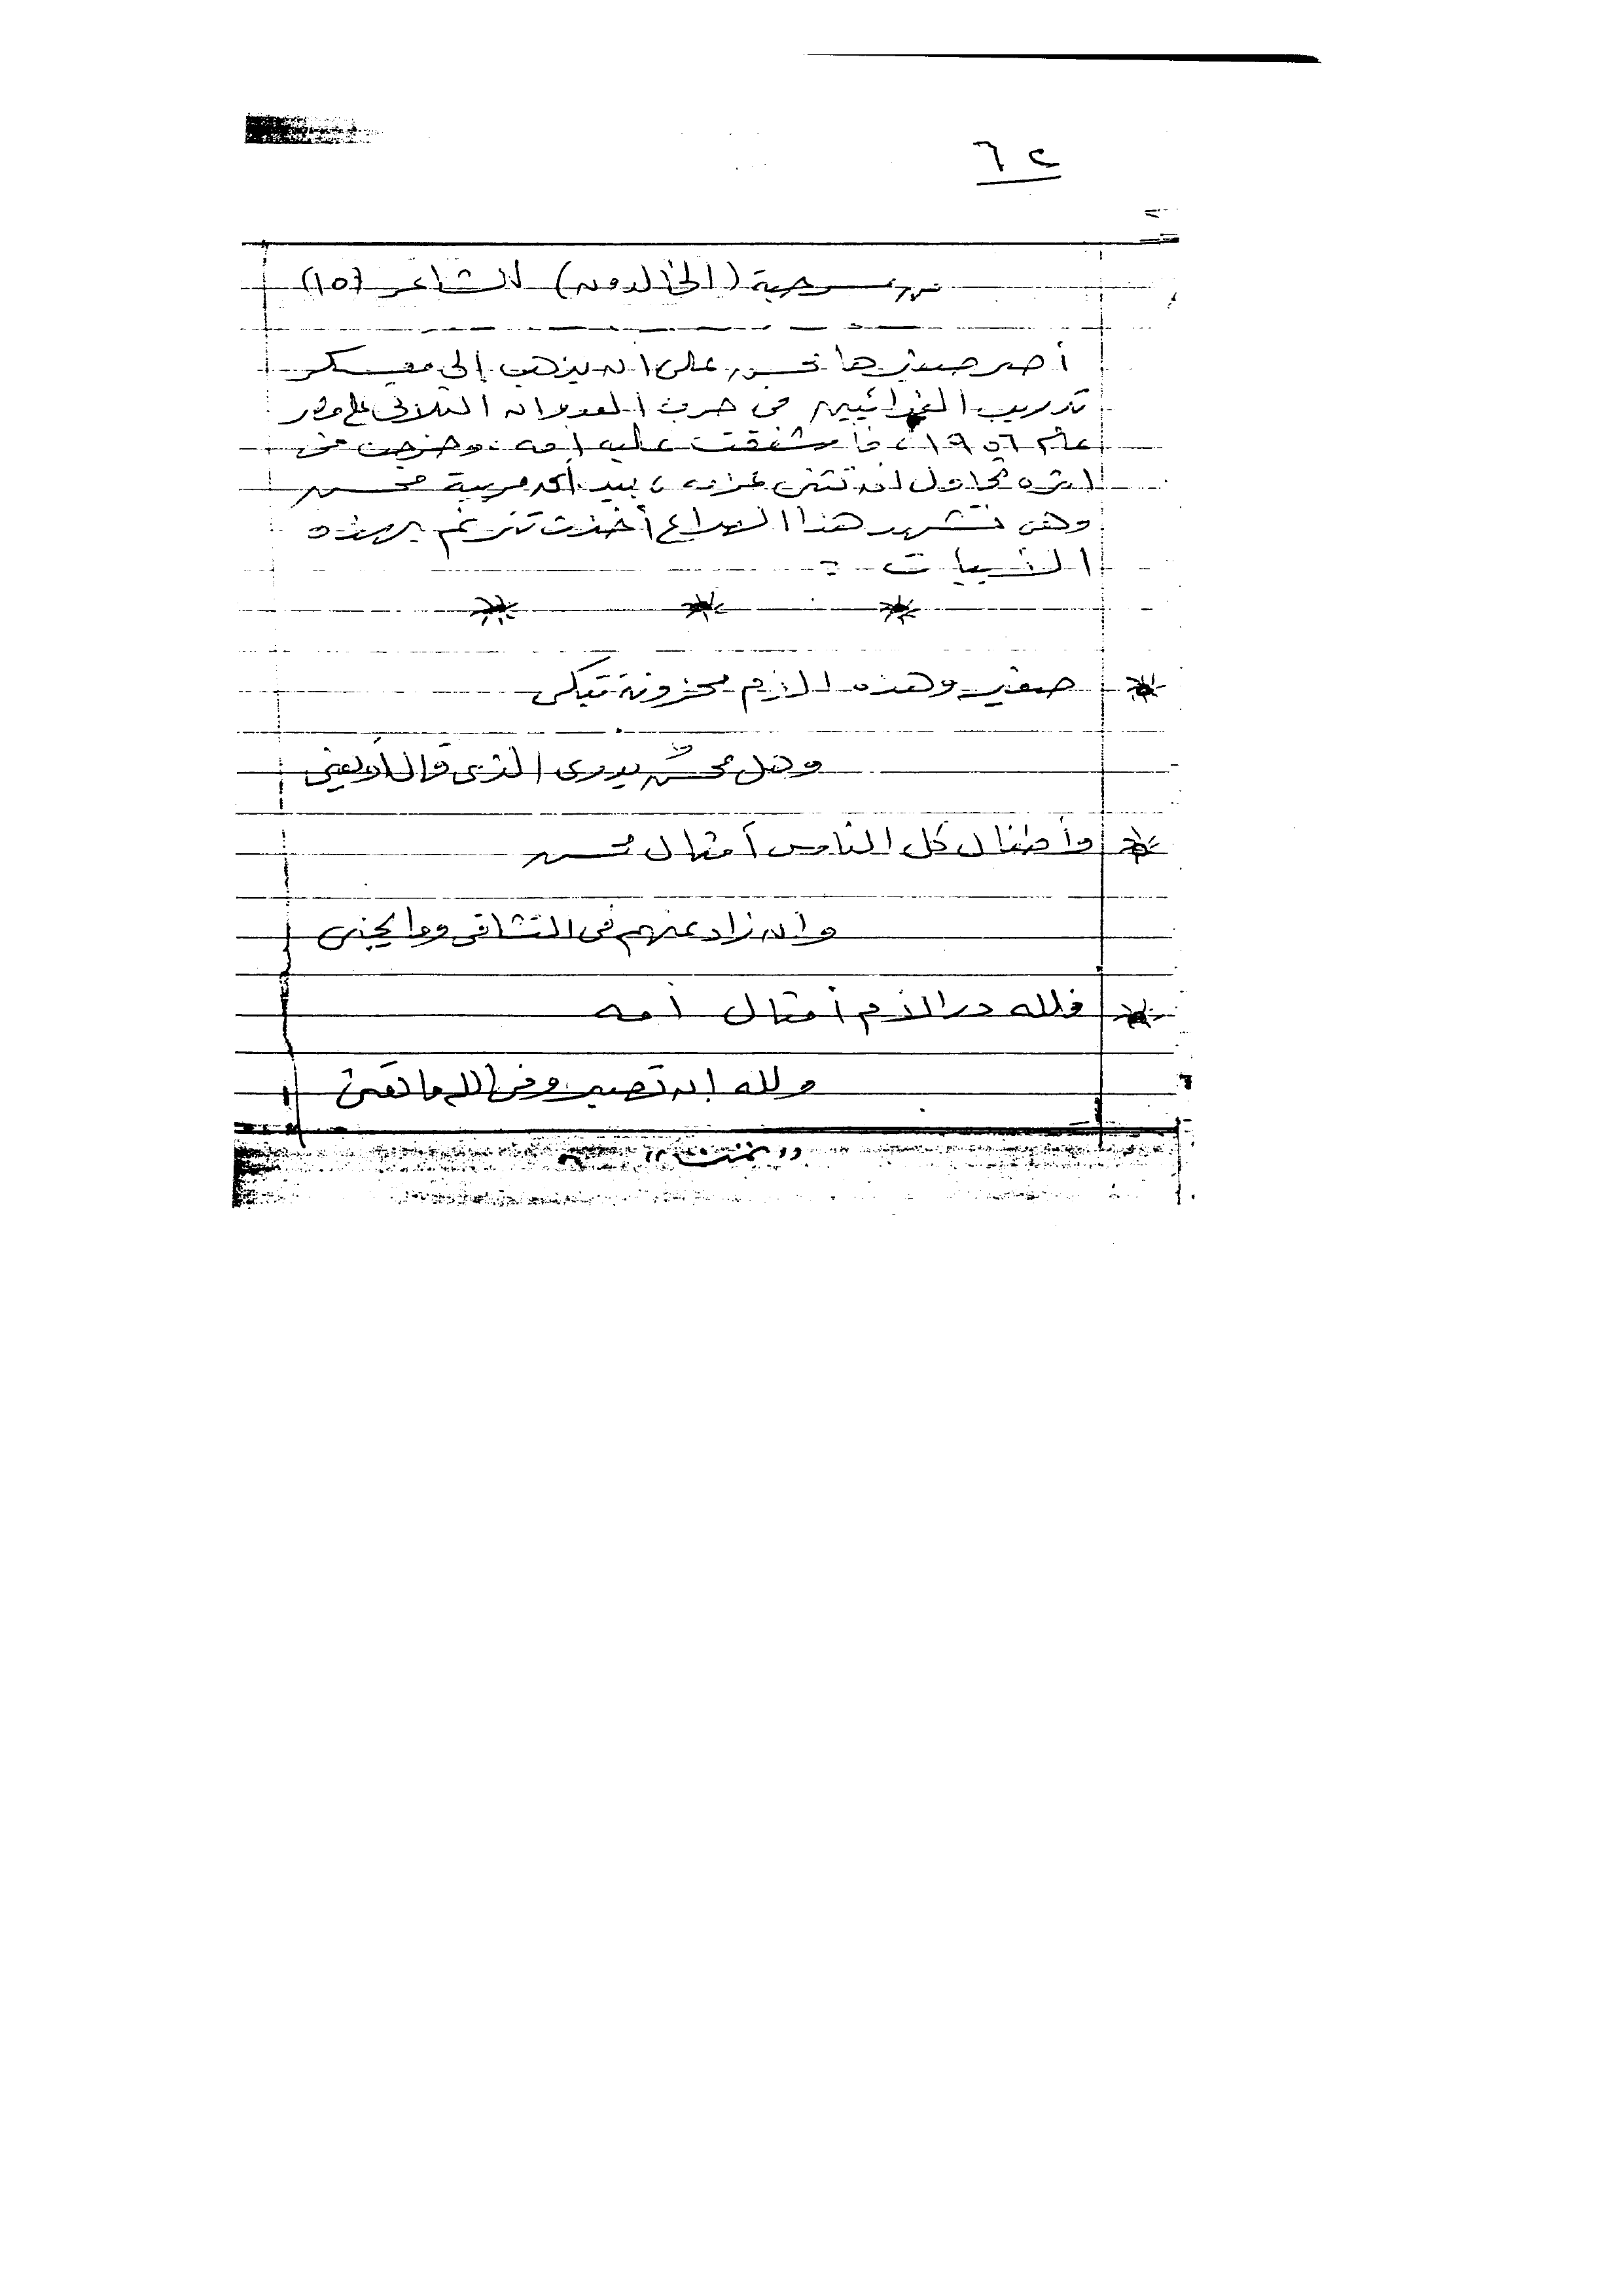 ٦٢
من مسرحية (الخالدون) للشاعر (١٥)
أصر صغيرها محسن على ان يذهب إلى معسكر
تدريب الفدائيين فى حرب العدوان الثلاثى على مصر
عام ١٩٥٦، فأشفقت عليه أمه. وخرجت فى
اثره تحاول ان تثنى عزمه، بيد أن مربية محسن
وهى تشهد هذا الصراع أخذت تترنم بهذه
الأبيات :
* * *
* صغير وهذه الأم محزونة تبكى
وهل محسنٌ يدرى الذى قال أو يعنى
* وأطفال كل الناس أمثال محسن
وان زاد عنهم فى التشاقى وما يجنى
* فلله در الأم أمثال أمه
ولله ان تصبر وفى الله ما تعنى
"تمت"